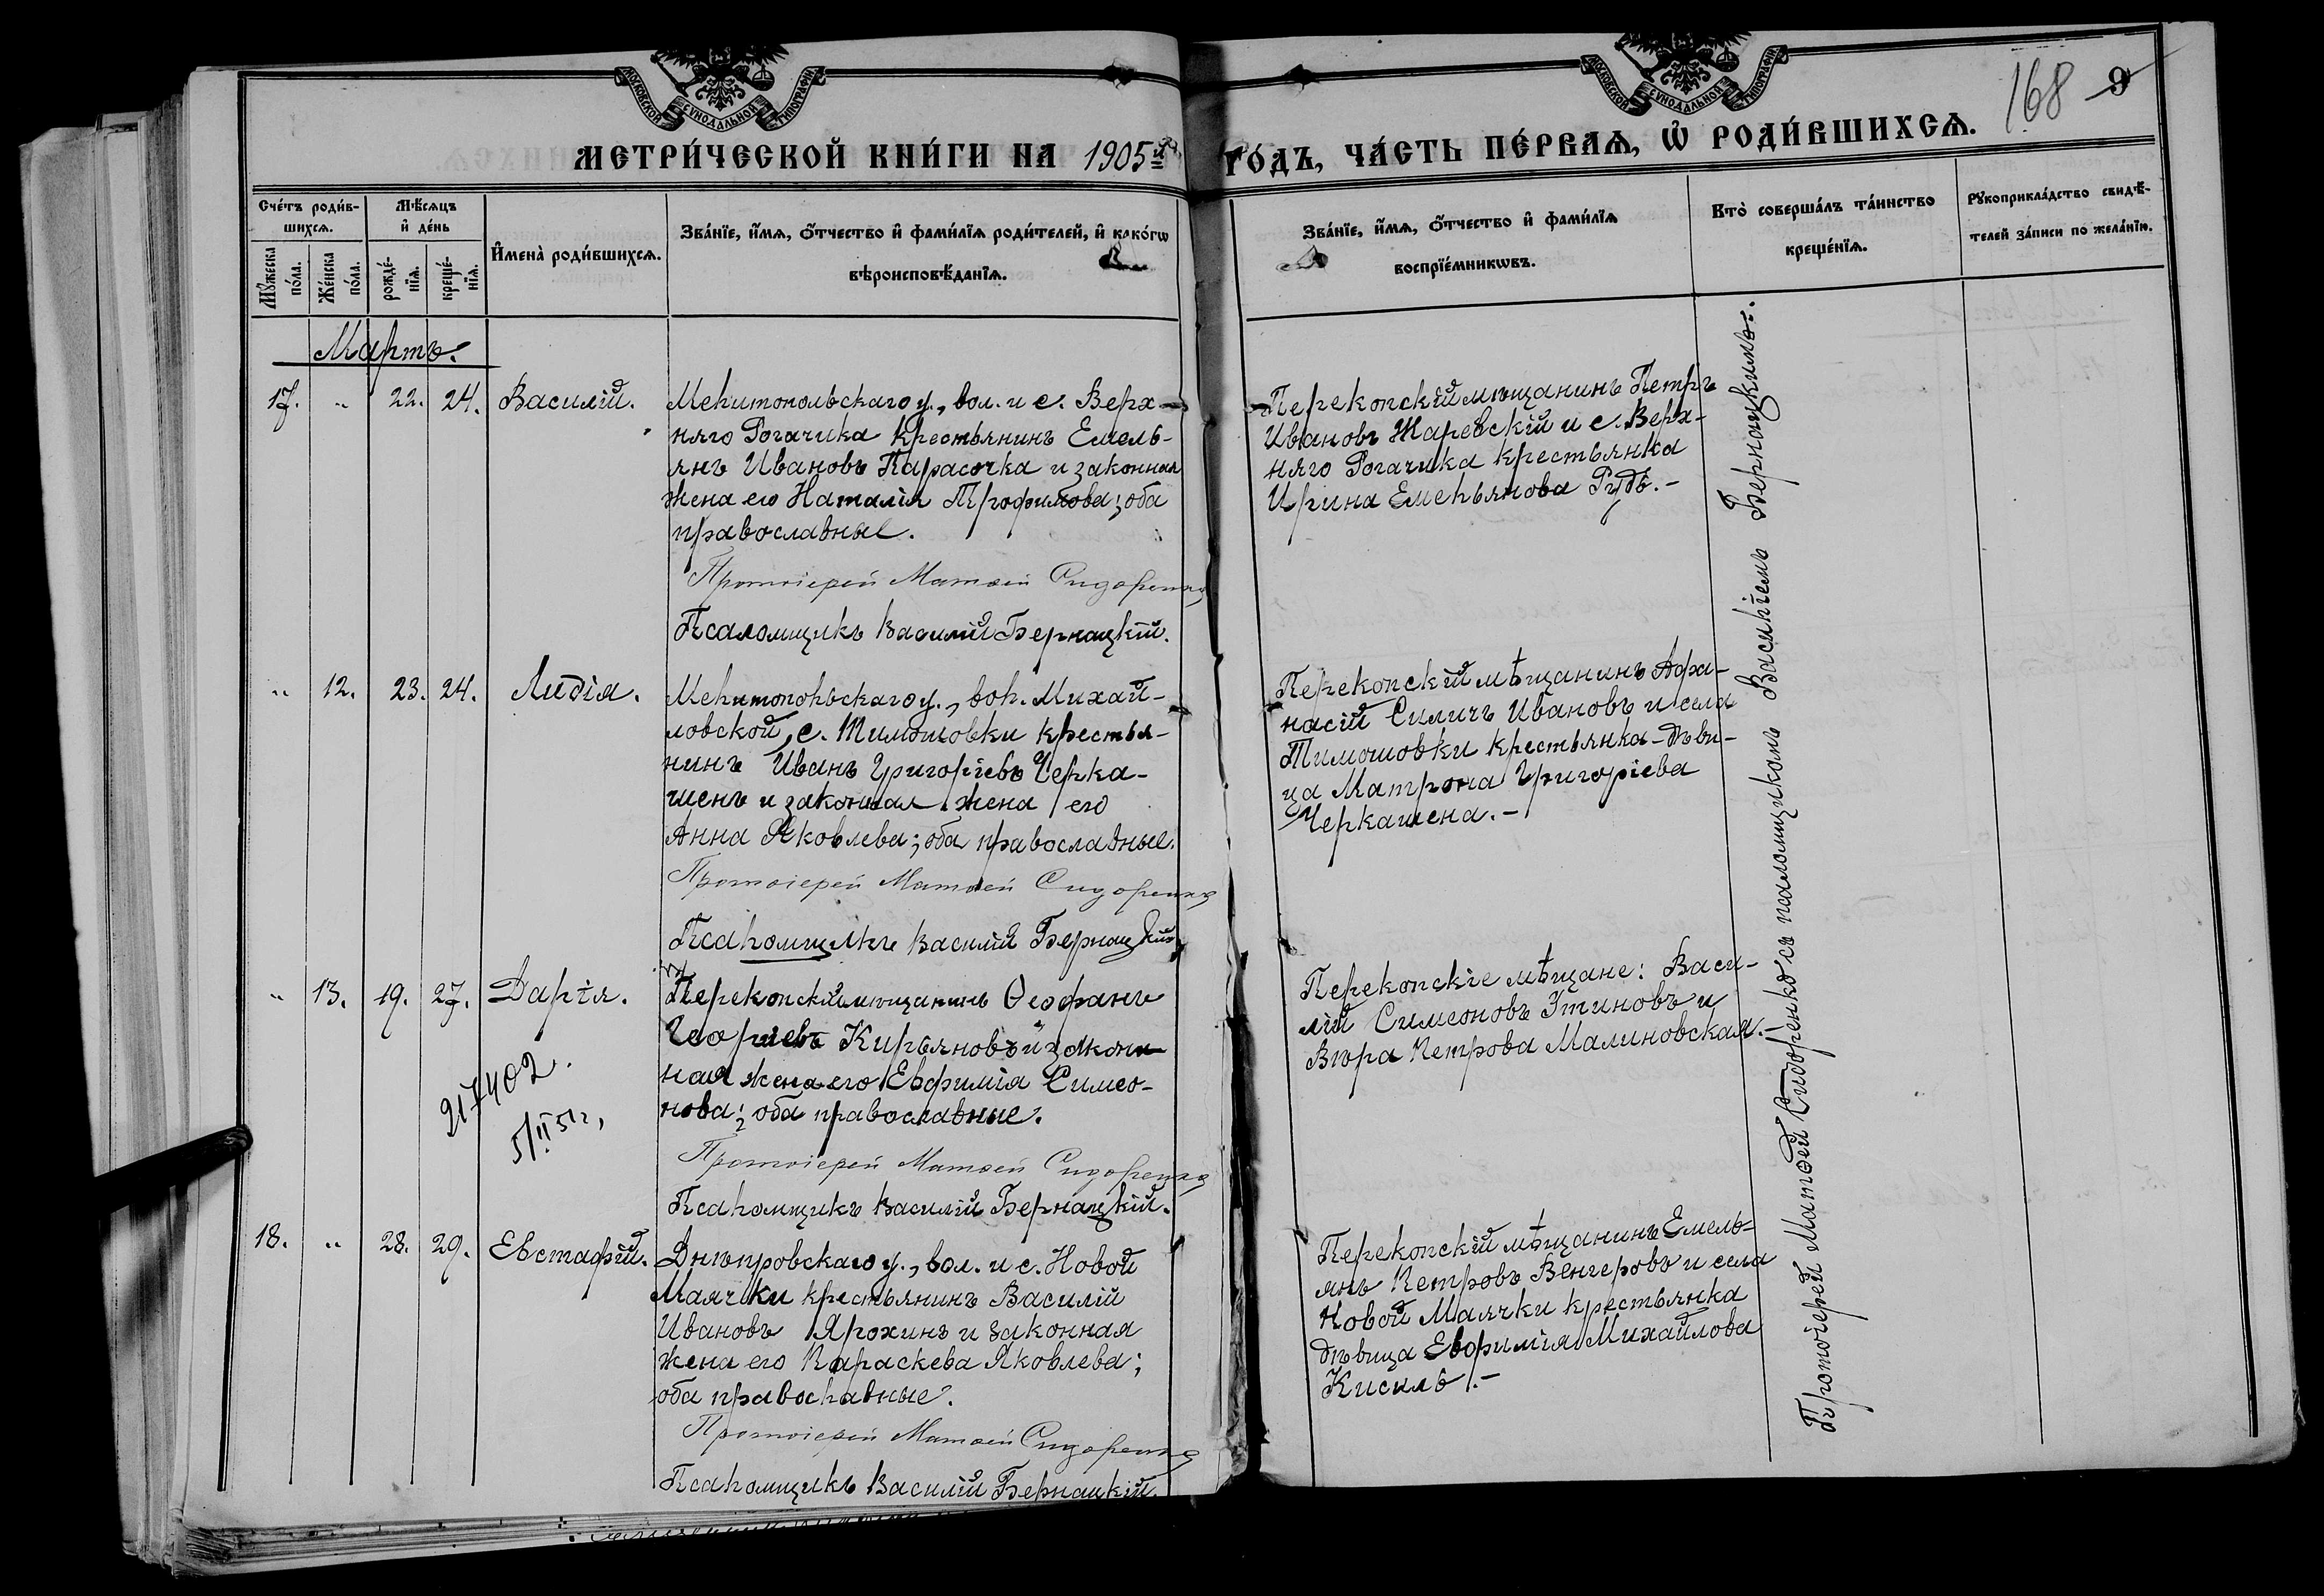 МОСКОВСКОЙ СѴНОДАЛЬНОЙ ТИПОГРАФІИ
МОСКОВСКОЙ СѴНОДАЛЬНОЙ ТИПОГРАФІИ
168 9
МЕТРИ́ЧЕСКОЙ КНИ́ГИ НА 1905й
ГО́ДЪ, ЧА́СТЬ ПЕ́РВАѦ, Ѡ РОДИ́ВШИХСѦ.
Сче́тъ роди́в-
шихсѧ.
Мꙋжеска по́ла.
Же́нска по́ла.
Мѣ́сѧцъ и́ де́нь
рожде́-нїѧ.
креще́-нїѧ.
И҆мена̀ роди́вшихсѧ.
Зва́нїе, и҆́мѧ, ѻ҆́тчество и҆ фами́лїѧ роди́телей, и҆ како́гѡ
вѣроисповѣ́данїѧ.
Зва́нїе, и҆́мѧ, ѻ҆́тчество и҆ фами́лїѧ
воспрїе́мникѡвъ.
Кто̀ соверша́лъ та́инство
креще́нїѧ.
Рꙋкоприкла́дство свидѣ́-
телей за́писи по жела́нїю.
Мартъ.
17. „ 22. 24. Василій.
Мелитопольскаго у., вол. и с. Верх-
няго Рогачика крестьянинъ Емель-
янъ Ивановъ Парасочка и законная
жена его Наталія Трофимова; оба
православные.
Протоіерей Матѳей Сидоренко
Псаломщикъ Василій Бернацкій.
Перекопскій мѣщанинъ Петръ
Ивановъ Жаревскій и с. Верх-
няго Рогачика крестьянка
Ирина Емельянова Рудь.-
„ 12. 23. 24. Лидія.
Мелитопольскаго у., вол. Михай-
ловской, с. Тимошовки крестья-
нинъ Иванъ Григоріевъ Черка-
шенъ и законная жена его
Анна Яковлева; оба православные.
Протоіерей Матѳей Сидоренко
Псаломщикъ Василій Бернацкій
Перекопскій мѣщанинъ Афа-
насій Силичъ Ивановъ и села
Тимошовки крестьянка-дѣви-
ца Матрона Григоріева
Черкашена.-
„ 13. 19. 27. Дарія.
217402.
5/II 51г,
Перекопскій мѣщанинъ Ѳеофанъ
Георгіевъ Кирьяновъ и закон-
ная жена его Евфимія Симео-
нова; оба православные.
Протоіерей Матѳей Сидоренко
Псаломщикъ Василій Бернацкій.
Перекопскіе мѣщане: Васи-
лій Симеоновъ Этиновъ и
Вѣра Петрова Малиновская.-
18. „ 28. 29. Евстафій.
Днѣпровскаго у., вол. и с. Новой
Маячки крестьянинъ Василій
Ивановъ Ярохинъ и законная
жена его Параскева Яковлева;
оба православные.
Протоіерей Матѳей Сидоренко
Псаломщикъ Василій Бернацкій.
Перекопскій мѣщанинъ Емель-
янъ Петровъ Венгеровъ и села
Новой Маячки крестьянка
дѣвица Евфимія Михайлова
Кисиль.-
Протоіерей Матѳей Сидоренко съ псаломщикомъ Василіемъ Бернацкимъ.